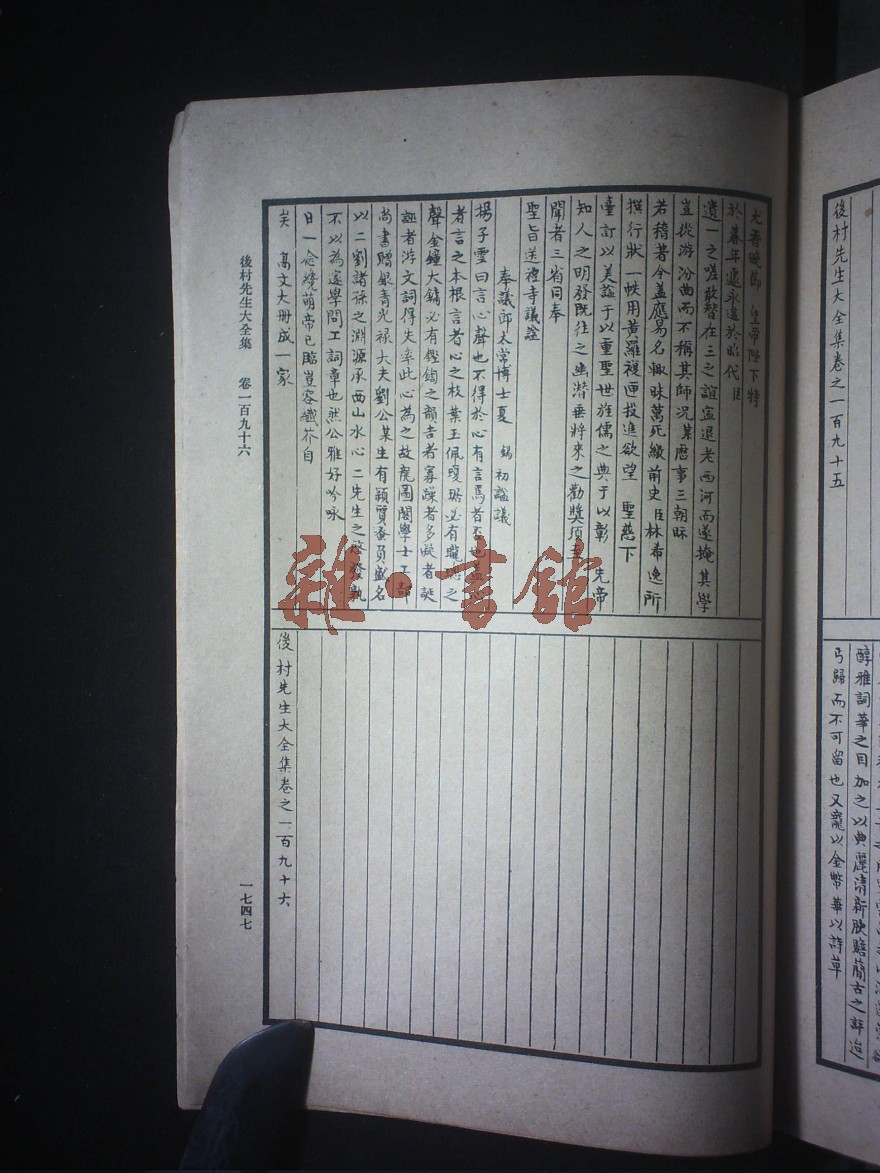 後村先生大全集卷之一百九十五
醇雅詞華之目加之以典麗清新腴贍簡古之評迨
弓歸而不可留也又寵以金幣華以詩章
皇帝陛下特
於暮年遞永遠於昭代臣
遺一之嗟敢替在三之誼宣退老西河而遂掩其學
豈從游汾曲而不稱其師況某歷事三朝眎
若稽著令盖應易名輙昧萬死繳前史臣林希逸所
撰行狀一帙用黃羅複匣投進欲望 聖慈下
臺訂以美謚于以重聖世旌儒之典于以彰 先帝
知人之明發既往之幽潜垂將來之勸獎須至
聞者三省同奉
聖旨送禮寺議謚
奉議郎太常博士夏 錫 初謚議
揚子雲曰言心聲也不得於心有言焉者否也
者言之本根言者心之枝葉玉佩瓊琚必有瓏璁之
聲金鐘大鏞必有鏗鍧之韻吉者寡躁者多疑者誕
誣者游文詞得失率此心為之故龍圖閣學士工部
尚書贈銀青光禄大夫劉公某生有穎質蚤負盛名
以二劉諸孫之淵源承西山水心二先生之啓發孰
不以為邃學問工詞章也然公雅好吟咏
日一念纔萌帝已臨豈容纖芥自
矣 高文大冊成一家
後村先生大全集卷之一百九十六
後村先生大全集 卷一百九十六
一七四七
雜·書館